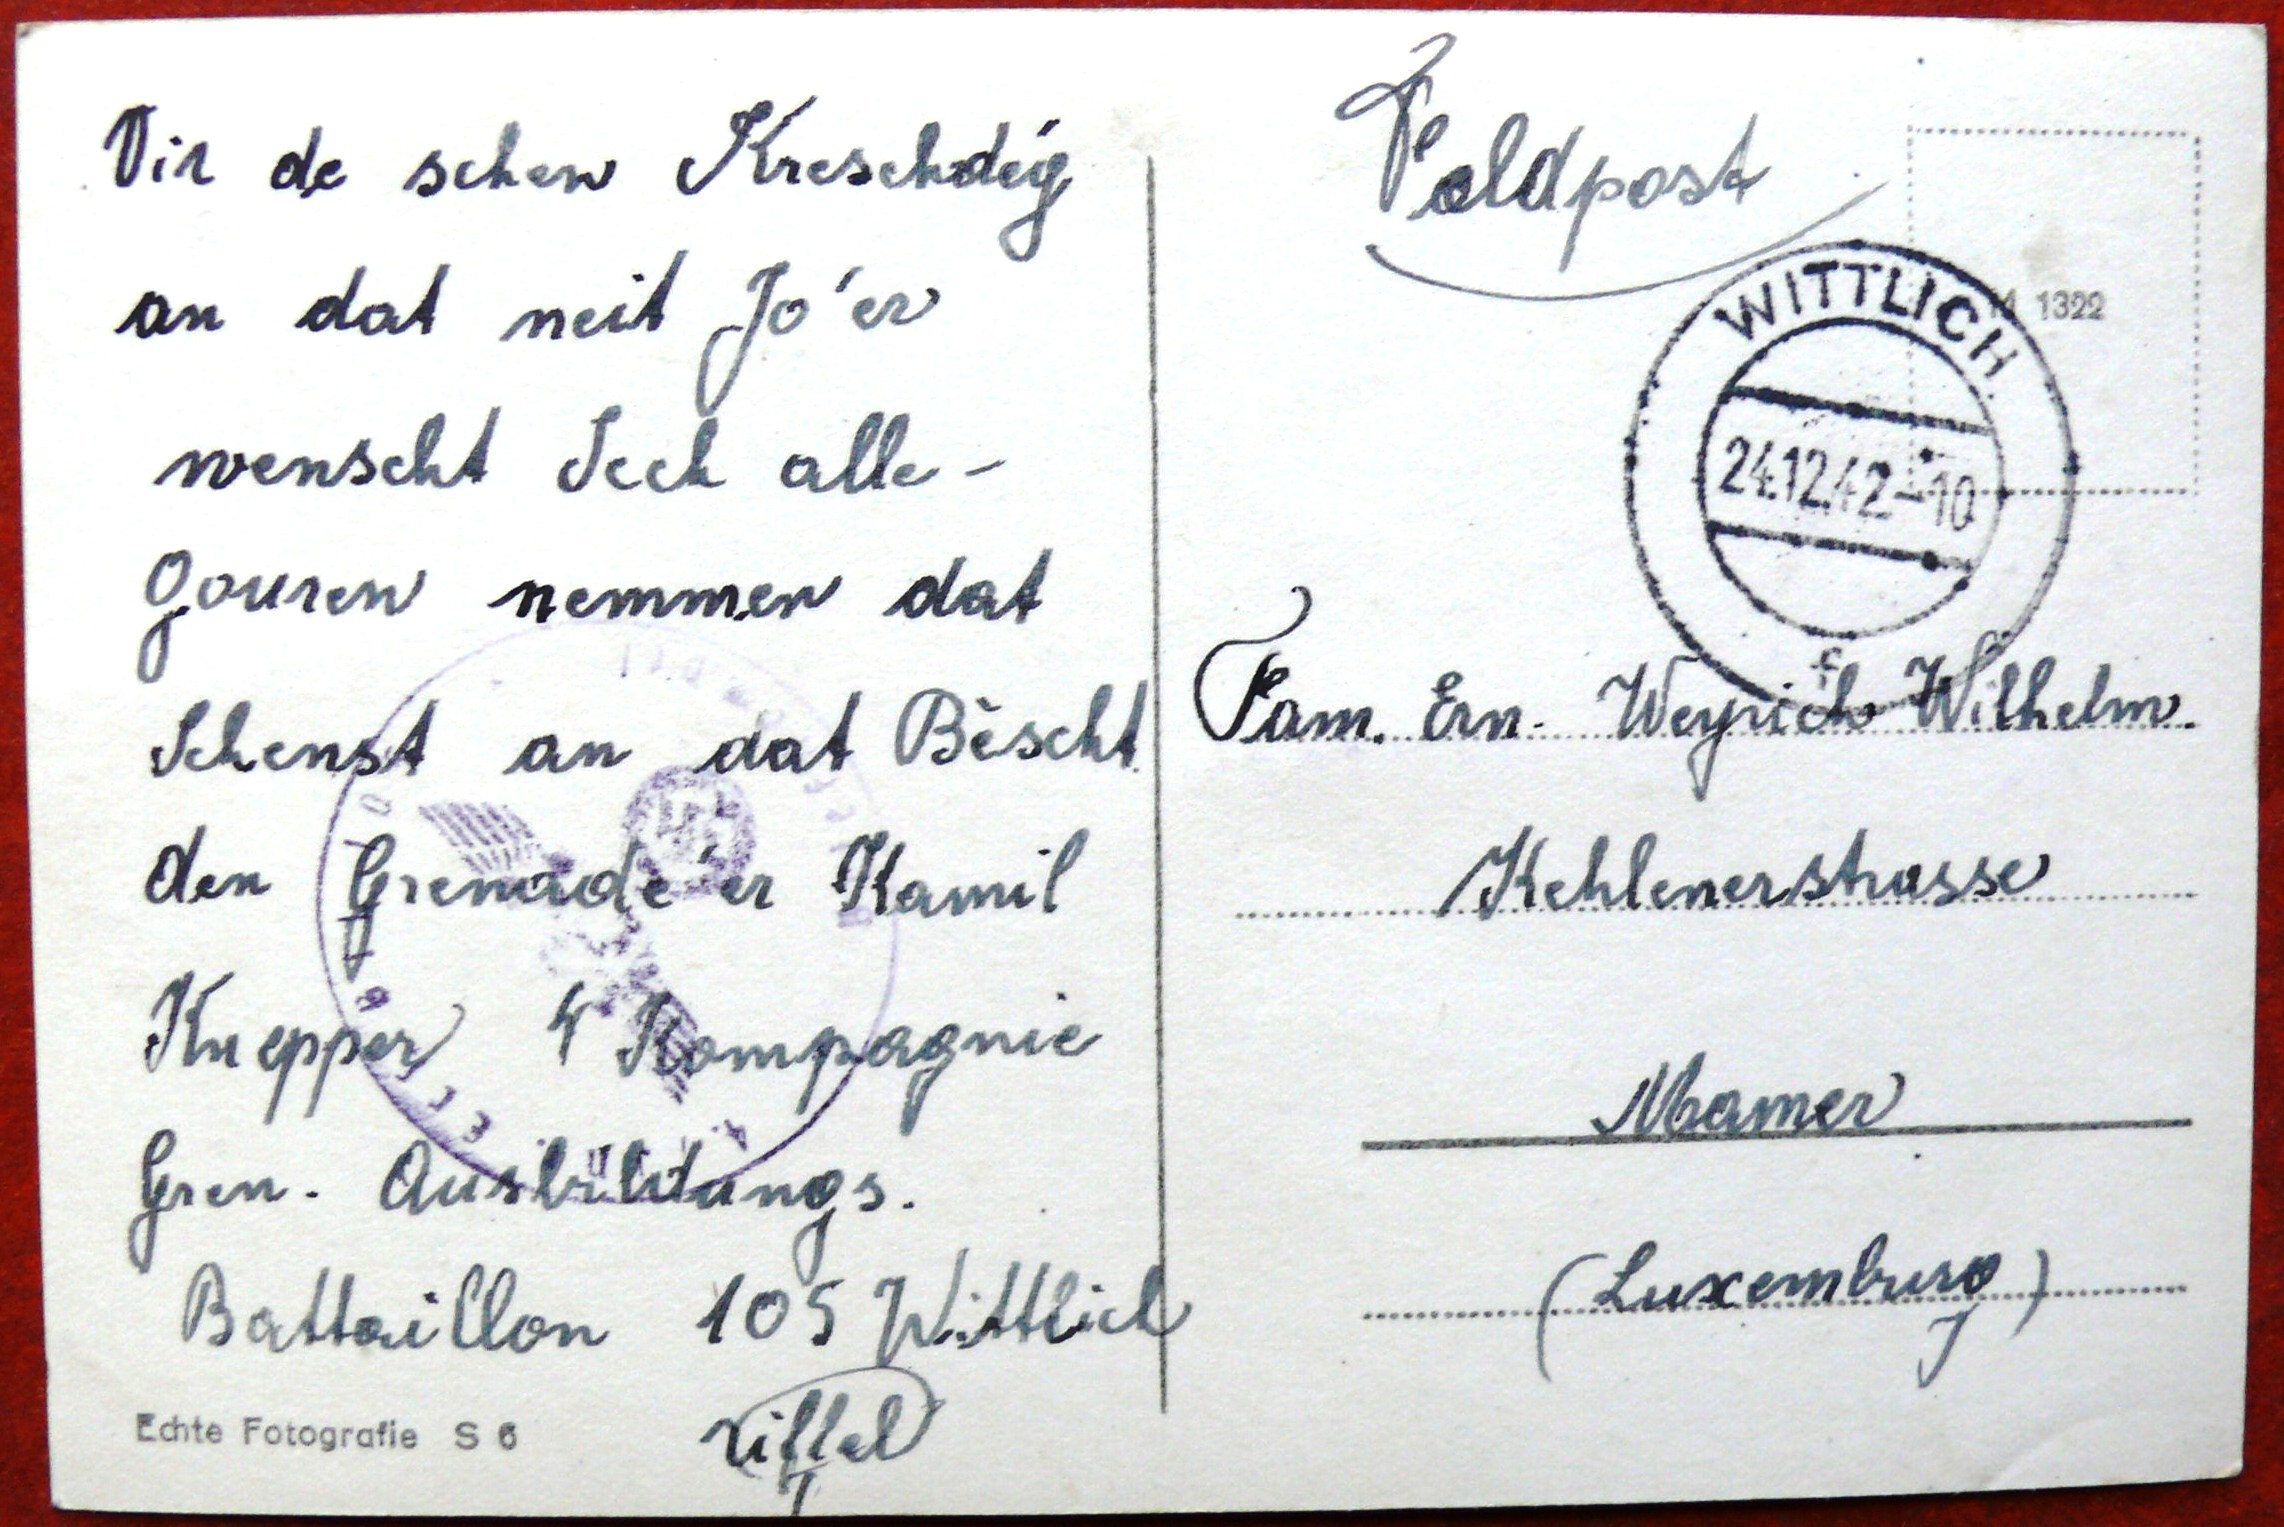 Vir de schen Kreschdég
an dat neit Jo'er
wenscht Iech alle-
gouren nemmen dat
Schenst an dat Bèscht
den Grenadé'er Kamil
Knepper 4 Kompagnie
Gren. Ausbildungs.
Battaillon 105 Wittlich
Eiffel
Echte Fotografie S 6
Feldpost
M 1322
WITTLICH
24.12.42-10
f
Fam. Ern. Weyrich Wilhelm.
Kehlenerstrasse
Mamer
(Luxemburg)